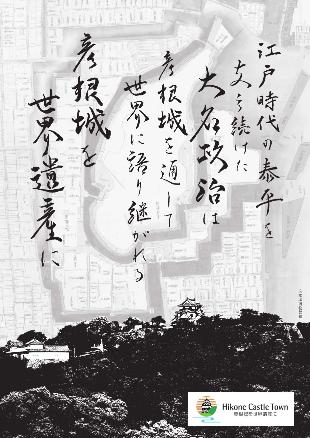 江戸時代の泰平を
支え続けた
大名政治は
彦根城を通して
世界に語り継がれる
彦根城を
世界遺産に
Hikone Castle Town